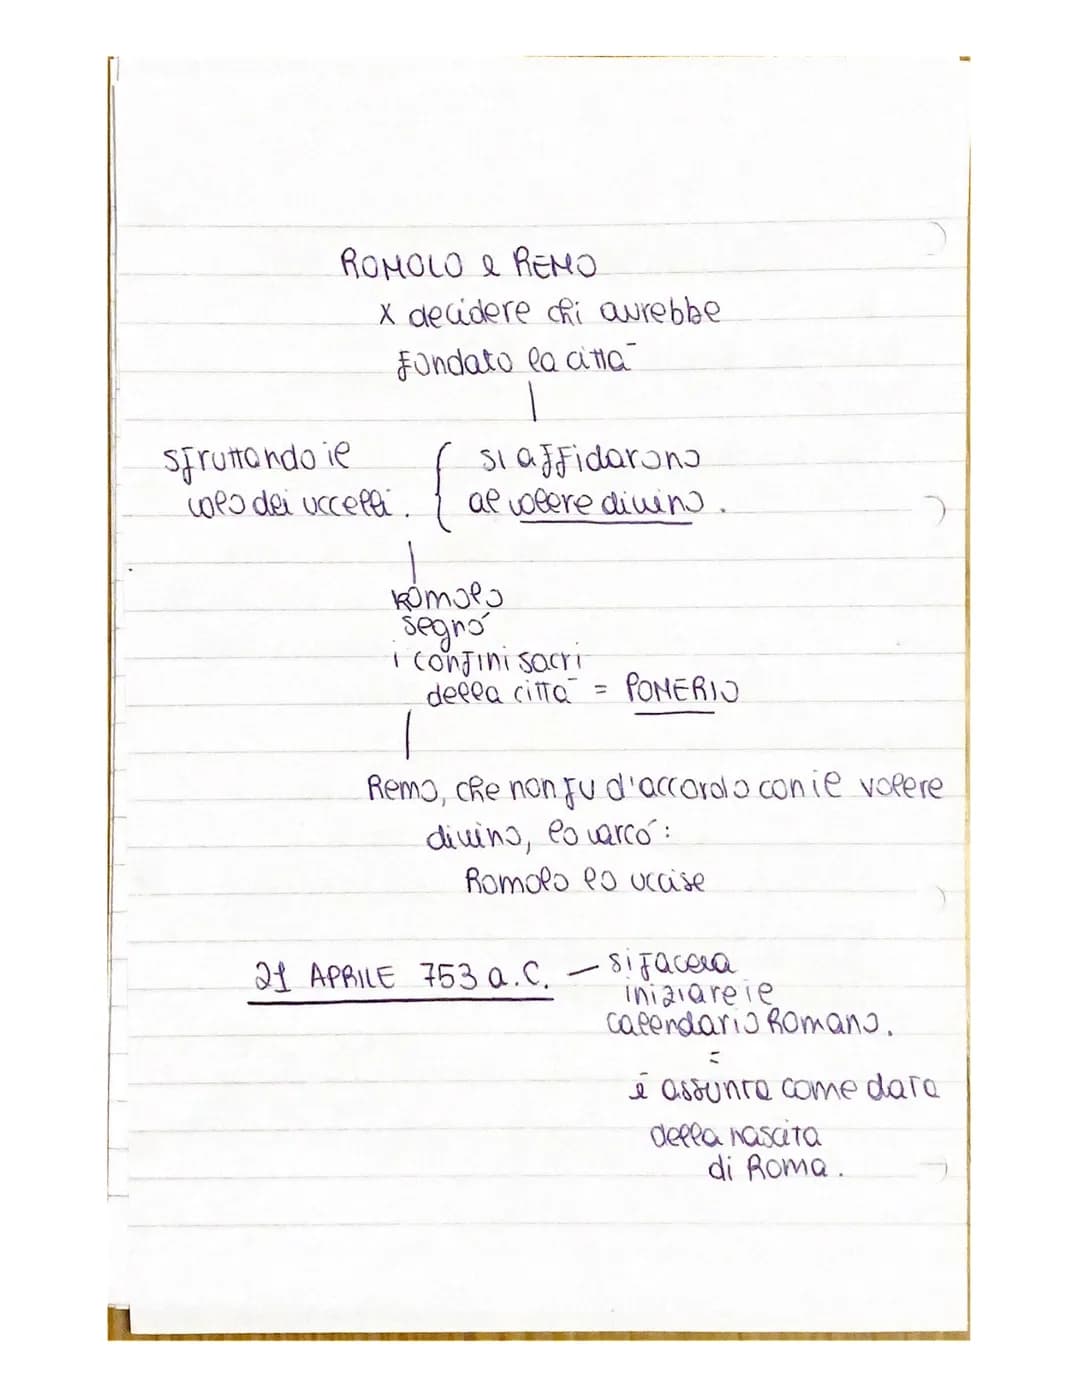 ROMOLO e REMO
x decidere chi avrebbe
fondato la città
sfruttando il
volo dei uccelli.
si affidarono
al volere divino.
Romolo
segnò
i confini sacri
della città = POMERIO
Remo, che non fu d'accordo con il volere
divino, lo varcò:
Romolo lo uccise
21 APRILE 753 a.C. - si faceva
iniziare il
calendario Romano.
=
è assunta come data
della nascita
di Roma.